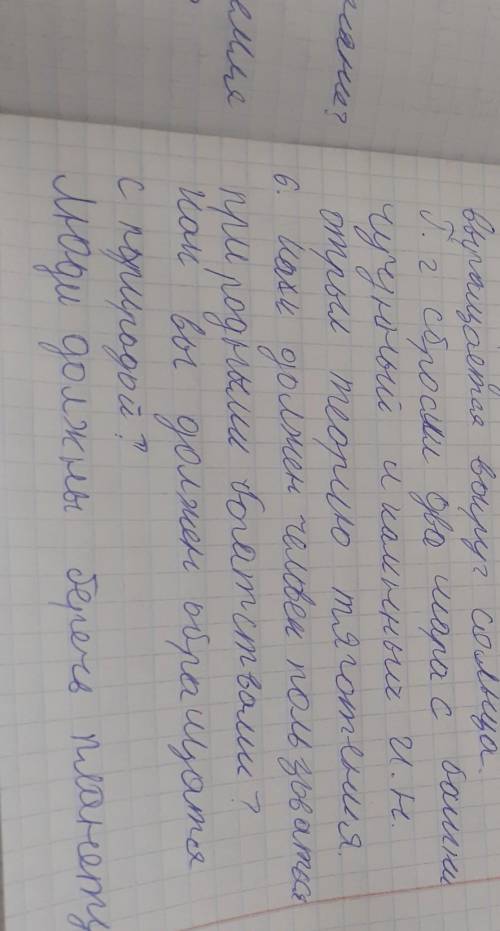 выращается вокруг солнца.
Г. г сбросил два шара с башни
чугунный и каменный И.Н.
открыл теорию тяготения.
6. Как должен человек пользываться
природными богатствами?
Как вы должен обращатся
с природой?
Люди должны беречь планету